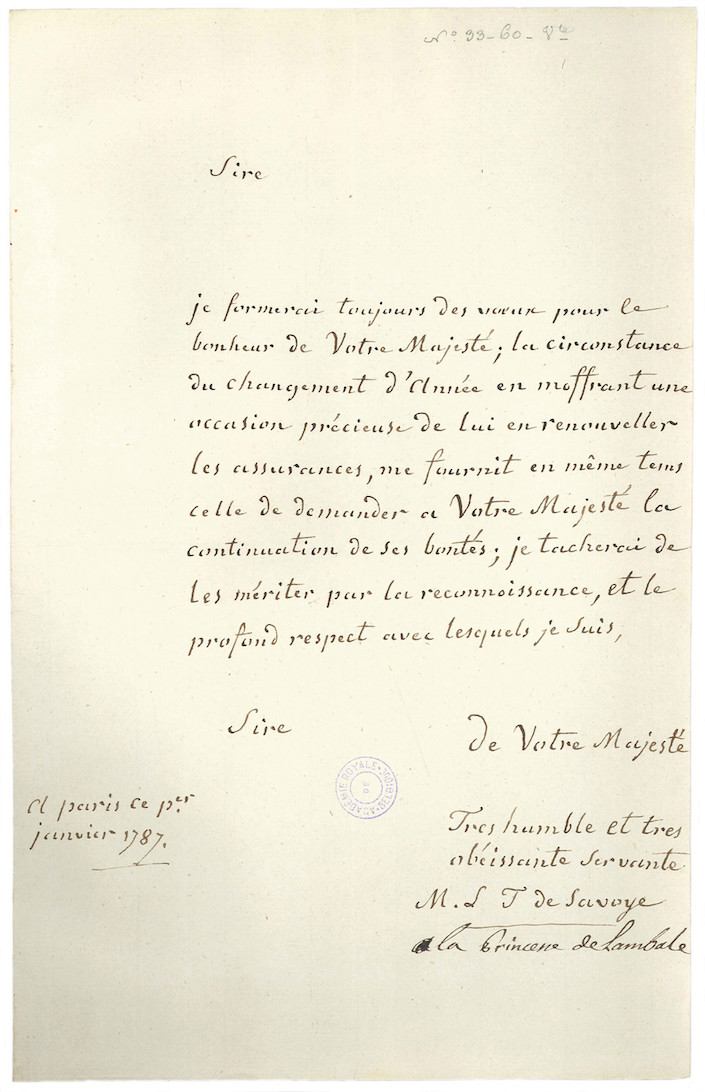 N° 33-60-
Sire
je formerai toujours des vœux pour le
bonheur de Votre Majesté; la circonstance
du changement d'Année en m'offrant une
occasion précieuse de lui en renouveller
les assurances, me fournit en même tems
celle de demander a Votre Majesté la
continuation de ses bontés; je tacherai de
les mériter par la reconnoissance, et le
profond respect avec lesquels je suis,
Sire
de Votre Majesté
A paris ce per.
janvier 1787.
Tres humble et tres
obéissante servante
M. L T de Savoye
la Princesse de Lambale
ACADÉMIE ROYALE